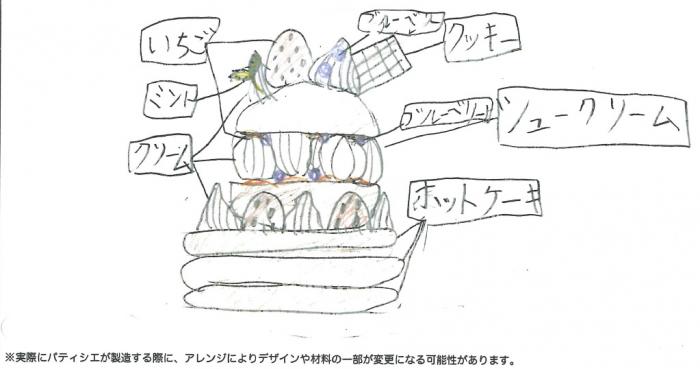 いちご
ブルーベリー
クッキー
ミント
ブルーベリー
シュークリーム
クリーム
ホットケーキ
※実際にパティシエが製造する際に、アレンジによりデザインや材料の一部が変更になる可能性があります。